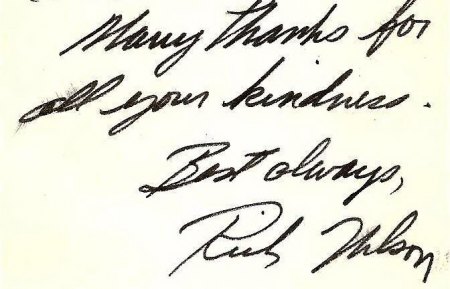 Many thanks for
all your kindness.
Best always,